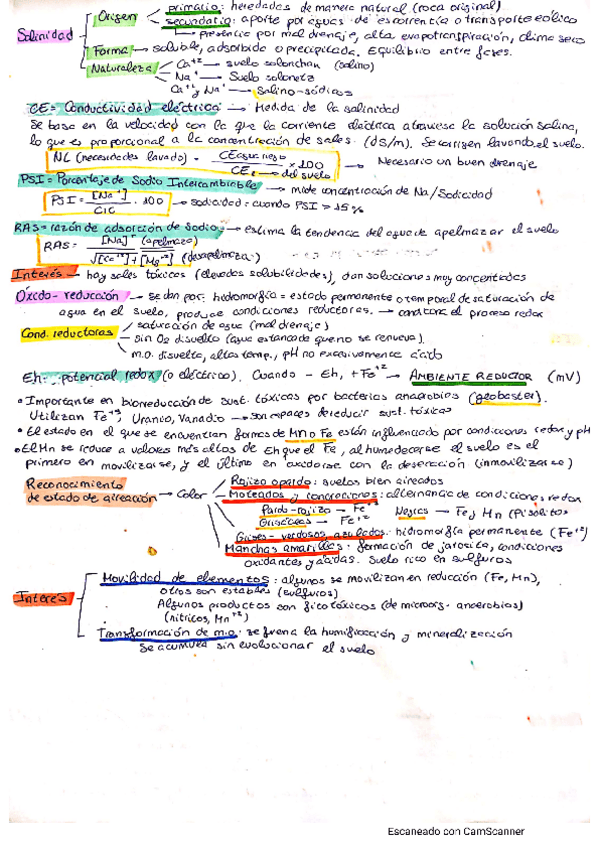 primario: heredadas de manera natural (roca original)
Salinidad Origen secundario: aporte por aguas de escorrentía o transporte eólico
→ presencia por mal drenaje, alta evapotranspiración, clima seco
Forma → soluble, adsorbido o precipitada. Equilibrio entre fases.
Naturaleza Ca+2 → suelo solonchan (salino)
Na+ → Suelo solonetz
Ca+2 y Na+ → Salino-sódicos
CE = Conductividad eléctrica → Medida de la salinidad
Se basa en la velocidad con la que la corriente eléctrica atraviesa la solución salina,
lo que es proporcional a la concentración de sales. (dS/m). Se corrigen lavando el suelo.
NL (necesidades lavado) = CE agua riego / CE del suelo × 100 → Necesario un buen drenaje
PSI = Porcentaje de Sodio Intercambiable → mide concentración de Na/Sodicidad
PSI = [Na+] / CIC · 100 → sodicidad: cuando PSI > 15%
RAS = razón de adsorción de Sodio → estima la tendencia del agua de apelmazar el suelo
RAS = [Na]+ (apelmaza) / √[Ca+2]+[Mg+2] (desapelmaza)
Interés → hay sales tóxicas (elevadas solubilidades), dan soluciones muy concentradas
Óxido-reducción → se dan por: hidromorfía = estado permanente o temporal de saturación de
agua en el suelo, produce condiciones reductoras. → controla el proceso redox
Cond. reductoras saturación de agua (mal drenaje)
sin O2 disuelto (agua estancada que no se renueva).
m.o. disuelta, altas temp., pH no excesivamente ácido
Eh: potencial redox (o eléctrico). Cuando - Eh, + Fe+2 → AMBIENTE REDUCTOR (mV)
• Importante en biorreducción de sust. tóxicas por bacterias anaerobias (geobacter).
Utilizan Fe+3, Uranio, Vanadio → son capaces de reducir sust. tóxicas
• El estado en el que se encuentran formas de Mn o Fe están influenciado por condiciones redox y pH
• El Mn se reduce a valores más altos de Eh que el Fe, al humedecerse el suelo es el
primero en movilizarse, y el último en oxidarse con la desecación (inmovilizarse)
Reconocimiento de estado de aireación → Color Rojizo opardo: suelos bien aireados
Moteados y concreciones: alternancia de condiciones redox
Pardo-rojizo → Fe+3 Negros → Fe y Mn (Pisolitos)
Grisáceas → Fe+2
Grises-verdosos, azulados: hidromorfía permanente (Fe+2)
Manchas amarillas: formación de jarosita, condiciones
oxidantes y ácidas. Suelo rico en sulfuros
Interés Movilidad de elementos: algunos se movilizan en reducción (Fe, Mn),
otros son estables (sulfuros)
Algunos productos son fitotóxicos (de microorg. anaerobios)
(nitricos, Mn+2)
Transformación de m.o.: se frena la humificación y mineralización
Se acumula sin evolucionar el suelo
Escaneado con CamScanner